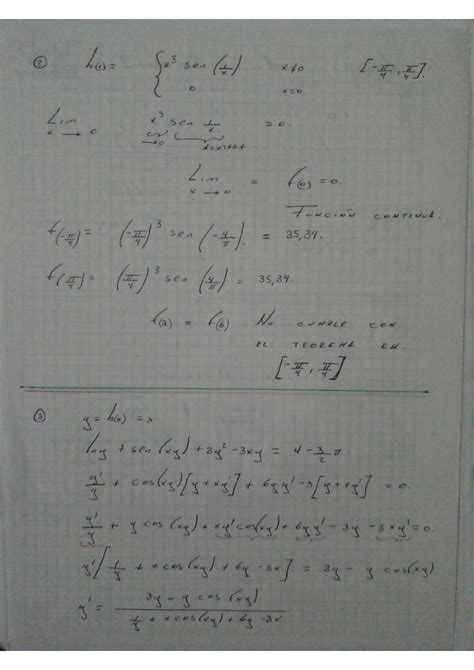 ② h(x) = { x³ sen (1/x) x≠0 [-π/4, π/4].
0 x=0.
Lim x→0 x³ sen 1/x = 0.
→0 ACOTADA
Lim x→0 = f(0) = 0.
FUNCIÓN CONTINUA.
f(-π/4) = (-π/4)³ sen (-4/π). = 35,34.
f(π/4) = (π/4)³ sen (4/π) = 35,34.
f(a) = f(b) No CUMPLE CON
EL TEOREMA EN.
[-π/4, π/4]
③ y = h(x) =>
lny + sen (xy) + 3y² - 3xy = 4 - 3/2 π.
y'/y + cos(xy)[y + xy'] + 6yy' - 3[y + xy'] = 0.
y'/y + y cos(xy) + xy' cos(xy) + 6yy' - 3y - 3xy' = 0
y'[1/y + x cos(xy) + 6y - 3x] = 3y - y cos(xy)
y' = 3y - y cos (xy) / 1/y + x cos(xy) + 6y - 3x